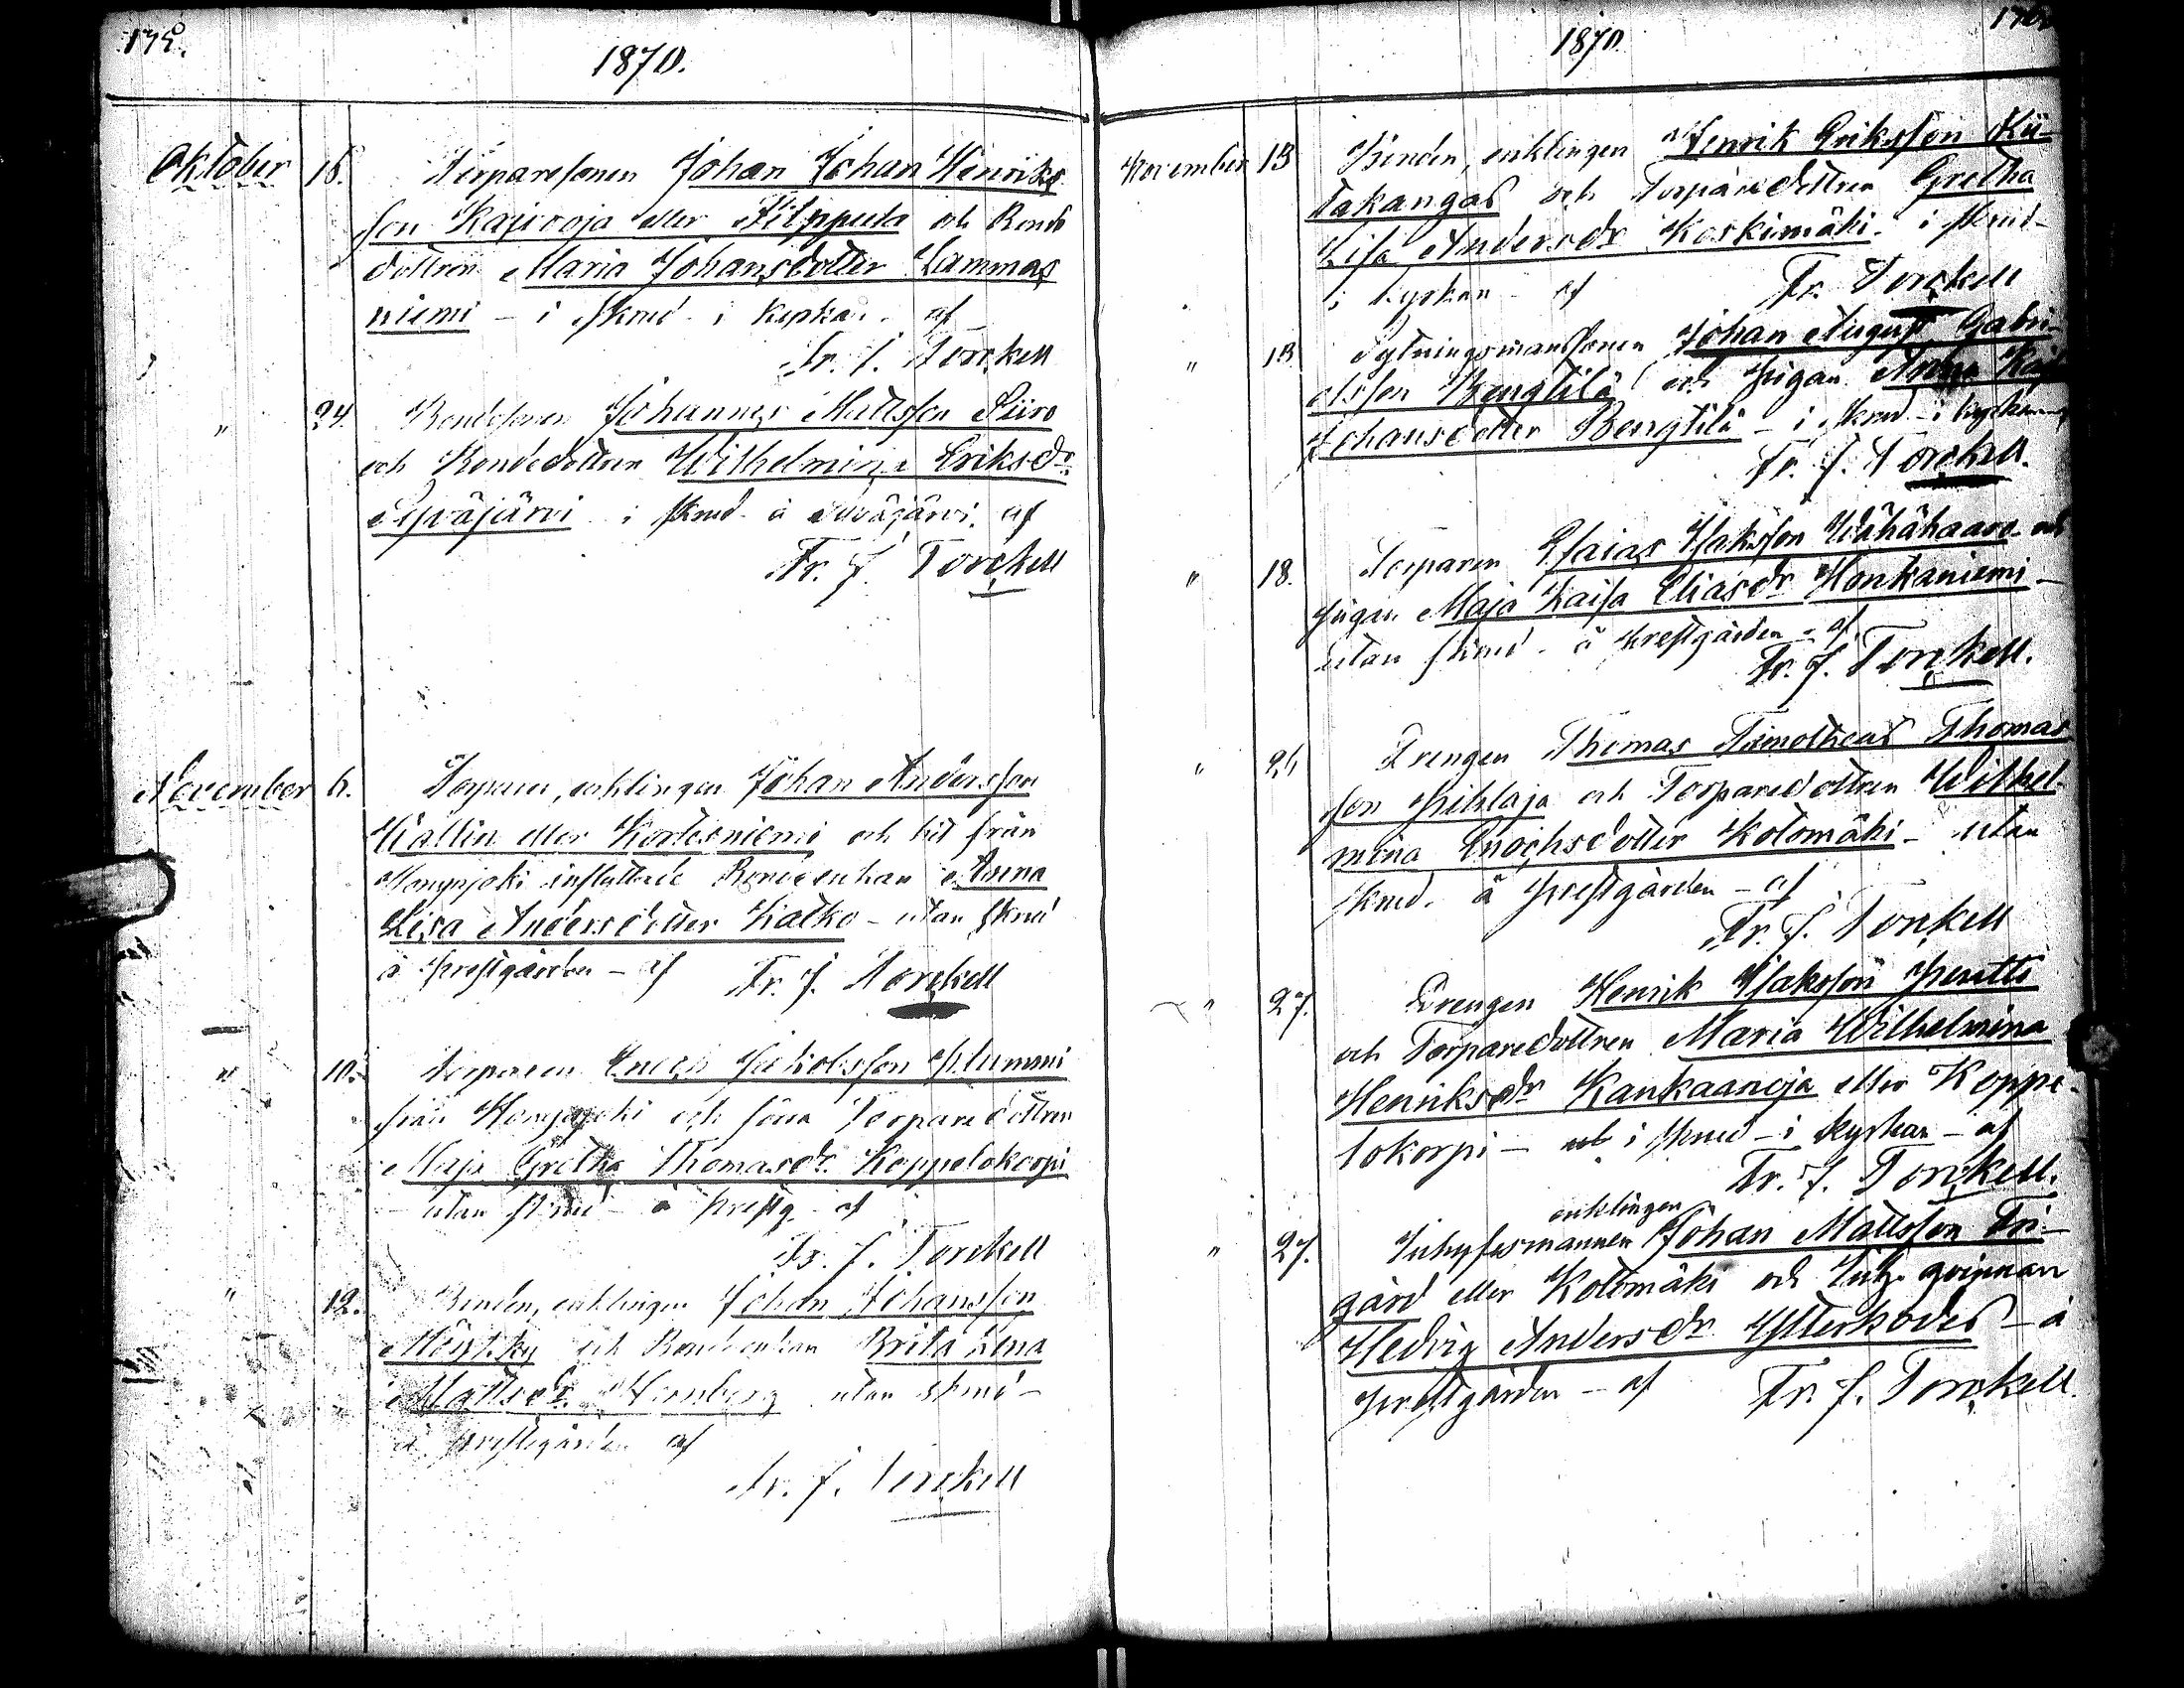 175.
1870.
Oktober 16. Torparesonen Johan Johan Henriks
son Kaivooja eller Filppula och Bonde
dottren Maria Johansdotter Lammas
niemi - i skrud - i kyrkan - af
Fr. J. Torckell
" 24. Bondesonen Johannes Mattsson Siiro
och Bondedottren Wilhelmina Eriksdr
Syväjärvi i skrud - å Syväjärvi, af
Fr. J. Torckell
November 6. Torparen, enklingen Johan Andersson
Wallin eller Kortesniemi och hit från
inflyttade Bondeenkan Anna
Lisa Andersdotter Katko - utan skrud
å prestgården - af Fr. J. Torckell
" 10. Torparen Enoch Jakobsson Nummi
från och förra Torparedottren
Maja Gretha Thomasdr. Koppelokorpi
- utan skrud - å prestg. af
Fr. J. Torckell
" 12. Bonden, enklingen Johan Johansson
och Bondeenkan Brita Lena
Mattsdr. utan skrud -
å prestgården af
Fr. J. Torckell
1870
November 13 Bonden, enklingen Henrik Eriksson Kii-
takangas och Torparedottren Gretha
Lisa Andersdr Koskimäki - i skrud -
i kyrkan - af Fr. Torckell
" 13 Sytningsmanssonen Johan August Gabri-
elsson Bengtilä och pigan Anna
Johansdotter Bengtilä - i skrud - i kyrkan
Fr. J. Torckell.
" 18. Torparen Esaias Isaksson Wähähaavo och
pigan Maja Kaisa Eliasdr Honkaniemi -
utan skrud - å prestgården - af
Fr. J. Torckell.
" Drengen Thomas Timotheus Thomas
son Pihlaja och Torparedottren Wilhel-
mina Enochsdotter Kotomäki - utan
skrud. å prestgården - af
Fr. J. Torckell
" 27. Drengen Henrik Isaksson Pentti
och Torparedottren Maria Wilhelmina
Henriksdr Kankaanoja eller Koppe-
lokorpi - i skrud - i kyrkan - af
Fr. J. Torckell.
enklingen
" 27. Inhysesmannen Johan Mattsson Fri-
gård eller Kotomäki och Inh. qvinnan
Hedvig Andersdr Ytterhodes - å
prestgården - af Fr. J. Torckell